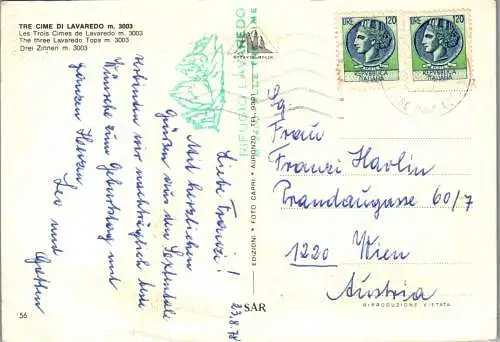 TRE CIME DI LAVAREDO m. 3003
Les Trois Cimes de Lavaredo m. 3003
The three Lavaredo Tops m. 3003
Drei Zinnen m. 3003
Liebe Franzi!
Mit herzlichen
Grüßen aus dem Sextentale
verbinden wir nachträglich beste
Wünsche zum Geburtstag und
ganzen Herzen
Leo und Gattin
23.8.78
56
RIFUGIO LAVAREDO
EDIZIONI * FOTO GAPRI * AURONZO * TEL.
SAR
LIRE 120
LIRE 120
Frau
Franzi Havlin
Prandaugasse 60/7
1220 Wien
Austria
RIPRODUZIONE VIETATA